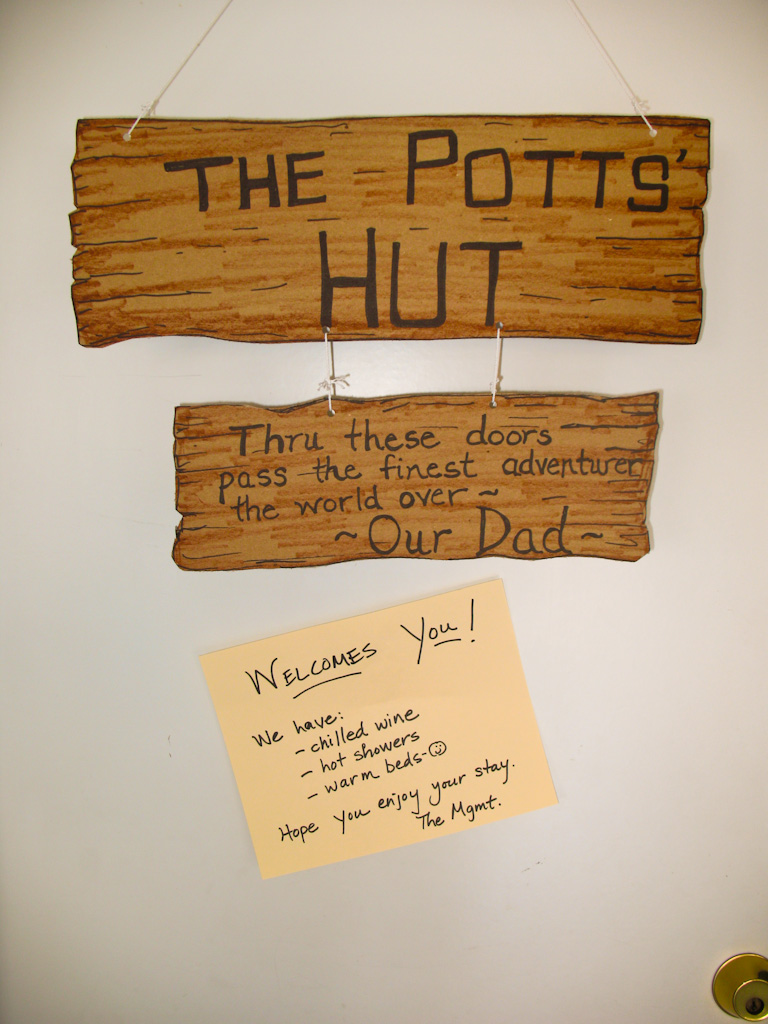 THE POTTS'
HUT
Thru these doors
pass the finest adventurer
the world over ~
~ Our Dad ~
WELCOMES YOU!
We have:
- chilled wine
- hot showers
- warm beds-☺
Hope you enjoy your stay.
The Mgmt.